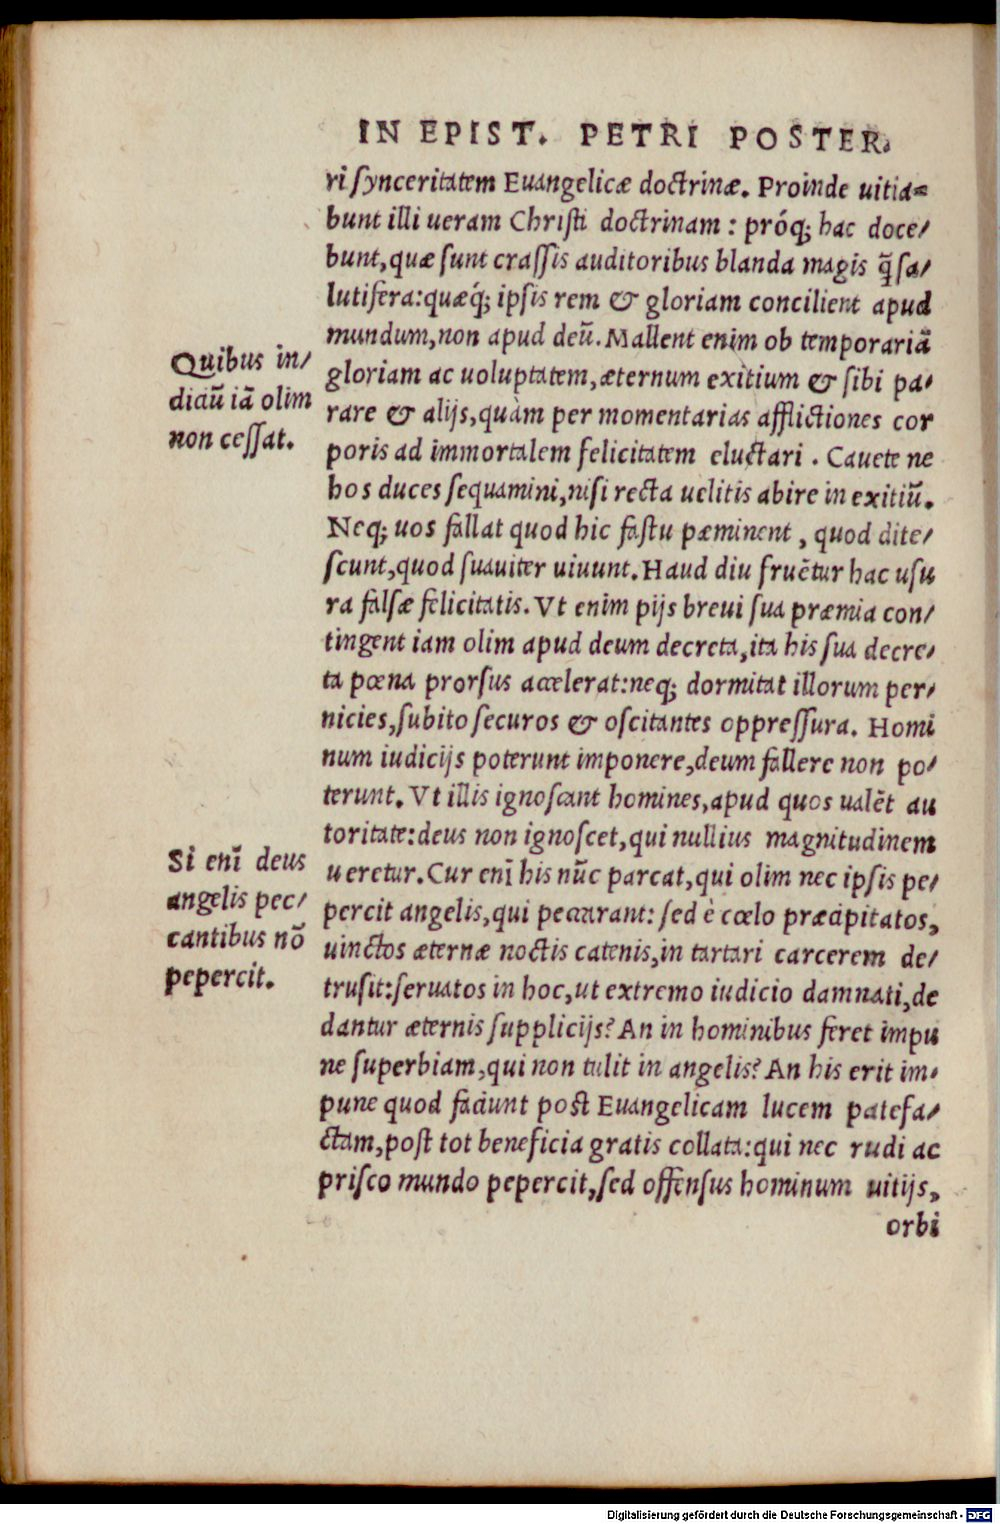 IN EPIST. PETRI POSTER.
ri synceritatem Euangelicæ doctrinæ. Proinde uitia=
bunt illi ueram Christi doctrinam : próq; hac doce/
bunt, quæ sunt crassis auditoribus blanda magis q̃ sa/
lutifera: quæq́; ipsis rem & gloriam concilient apud
mundum, non apud deũ. Mallent enim ob temporariã
gloriam ac uoluptatem, æternum exitium & sibi pa/
rare & alijs, quàm per momentarias afflictiones cor
poris ad immortalem felicitatem eluctari . Cauete ne
hos duces sequamini, nisi recta uelitis abire in exitiũ.
Neq; uos fallat quod hic fastu pæminent, quod dite/
scunt, quod suauiter uiuunt. Haud diu fruẽtur hac usu
ra falsæ felicitatis. Vt enim pijs breui sua præmia con/
tingent iam olim apud deum decreta, ita his sua decre/
ta pœna prorsus accelerat: neq; dormitat illorum per/
nicies, subito securos & oscitantes oppressura. Homi
num iudicijs poterunt imponere, deum fallere non po/
terunt. Vt illis ignoscant homines, apud quos ualẽt au
toritate: deus non ignoscet, qui nullius magnitudinem
ueretur. Cur enĩ his nũc parcat, qui olim nec ipsis pe/
percit angelis, qui peccarant: sed è cœlo præcipitatos,
uinctos æternæ noctis catenis, in tartari carcerem de/
trusit: seruatos in hoc, ut extremo iudicio damnati, de
dantur æternis supplicijs? An in hominibus feret impu
ne superbiam, qui non tulit in angelis? An his erit im/
pune quod faciunt post Euangelicam lucem patefa/
ctam, post tot beneficia gratis collata: qui nec rudi ac
prisco mundo pepercit, sed offensus hominum uitijs,
orbi
Quibus in/
diciũ iã olim
non cessat.
Si enĩ deus
angelis pec/
cantibus nõ
pepercit.
Digitalisierung gefördert durch die Deutsche Forschungsgemeinschaft - DFG